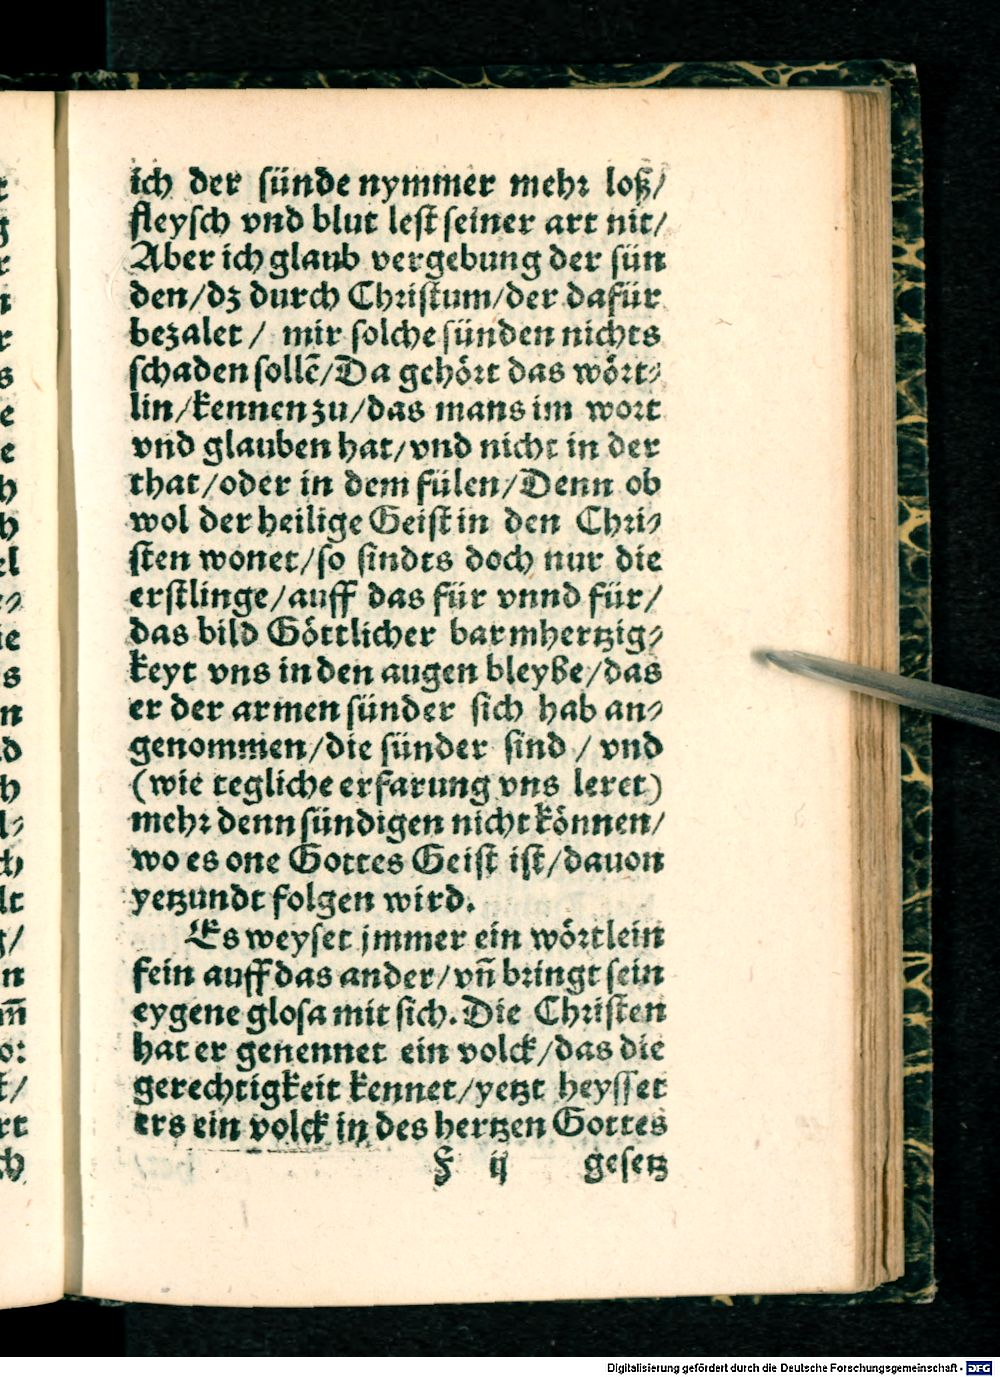 ich der sünde nymmer mehr loß/
fleysch vnd blut lest seiner art nit/
Aber ich glaub vergebung der sün
den/dz durch Christum/der dafür
bezalet / mir solche sünden nichts
schaden sollē/Da gehört das wört⸗
lin/kennen zu/das mans im wort
vnd glauben hat/vnd nicht in der
that/oder in dem fülen/Denn ob
wol der heilige Geist in den Chri⸗
sten wonet/so sindts doch nur die
erstlinge/auff das für vnnd für/
das bild Göttlicher barmhertzig⸗
keyt vns in den augen bleybe/das
er der armen sünder sich hab an⸗
genommen/die sünder sind / vnd
(wie tegliche erfarung vns leret)
mehr denn sündigen nicht können/
wo es one Gottes Geist ist/dauon
yetzundt folgen wird.
Es weyset jmmer ein wörtlein
fein auff das ander/vñ bringt sein
eygene glosa mit sich. Die Christen
hat er genennet ein volck/das die
gerechtigkeit kennet/yetzt heysset
ers ein volck in des hertzen Gottes
F ij gesetz
Digitalisierung gefördert durch die Deutsche Forschungsgemeinschaft - DFG